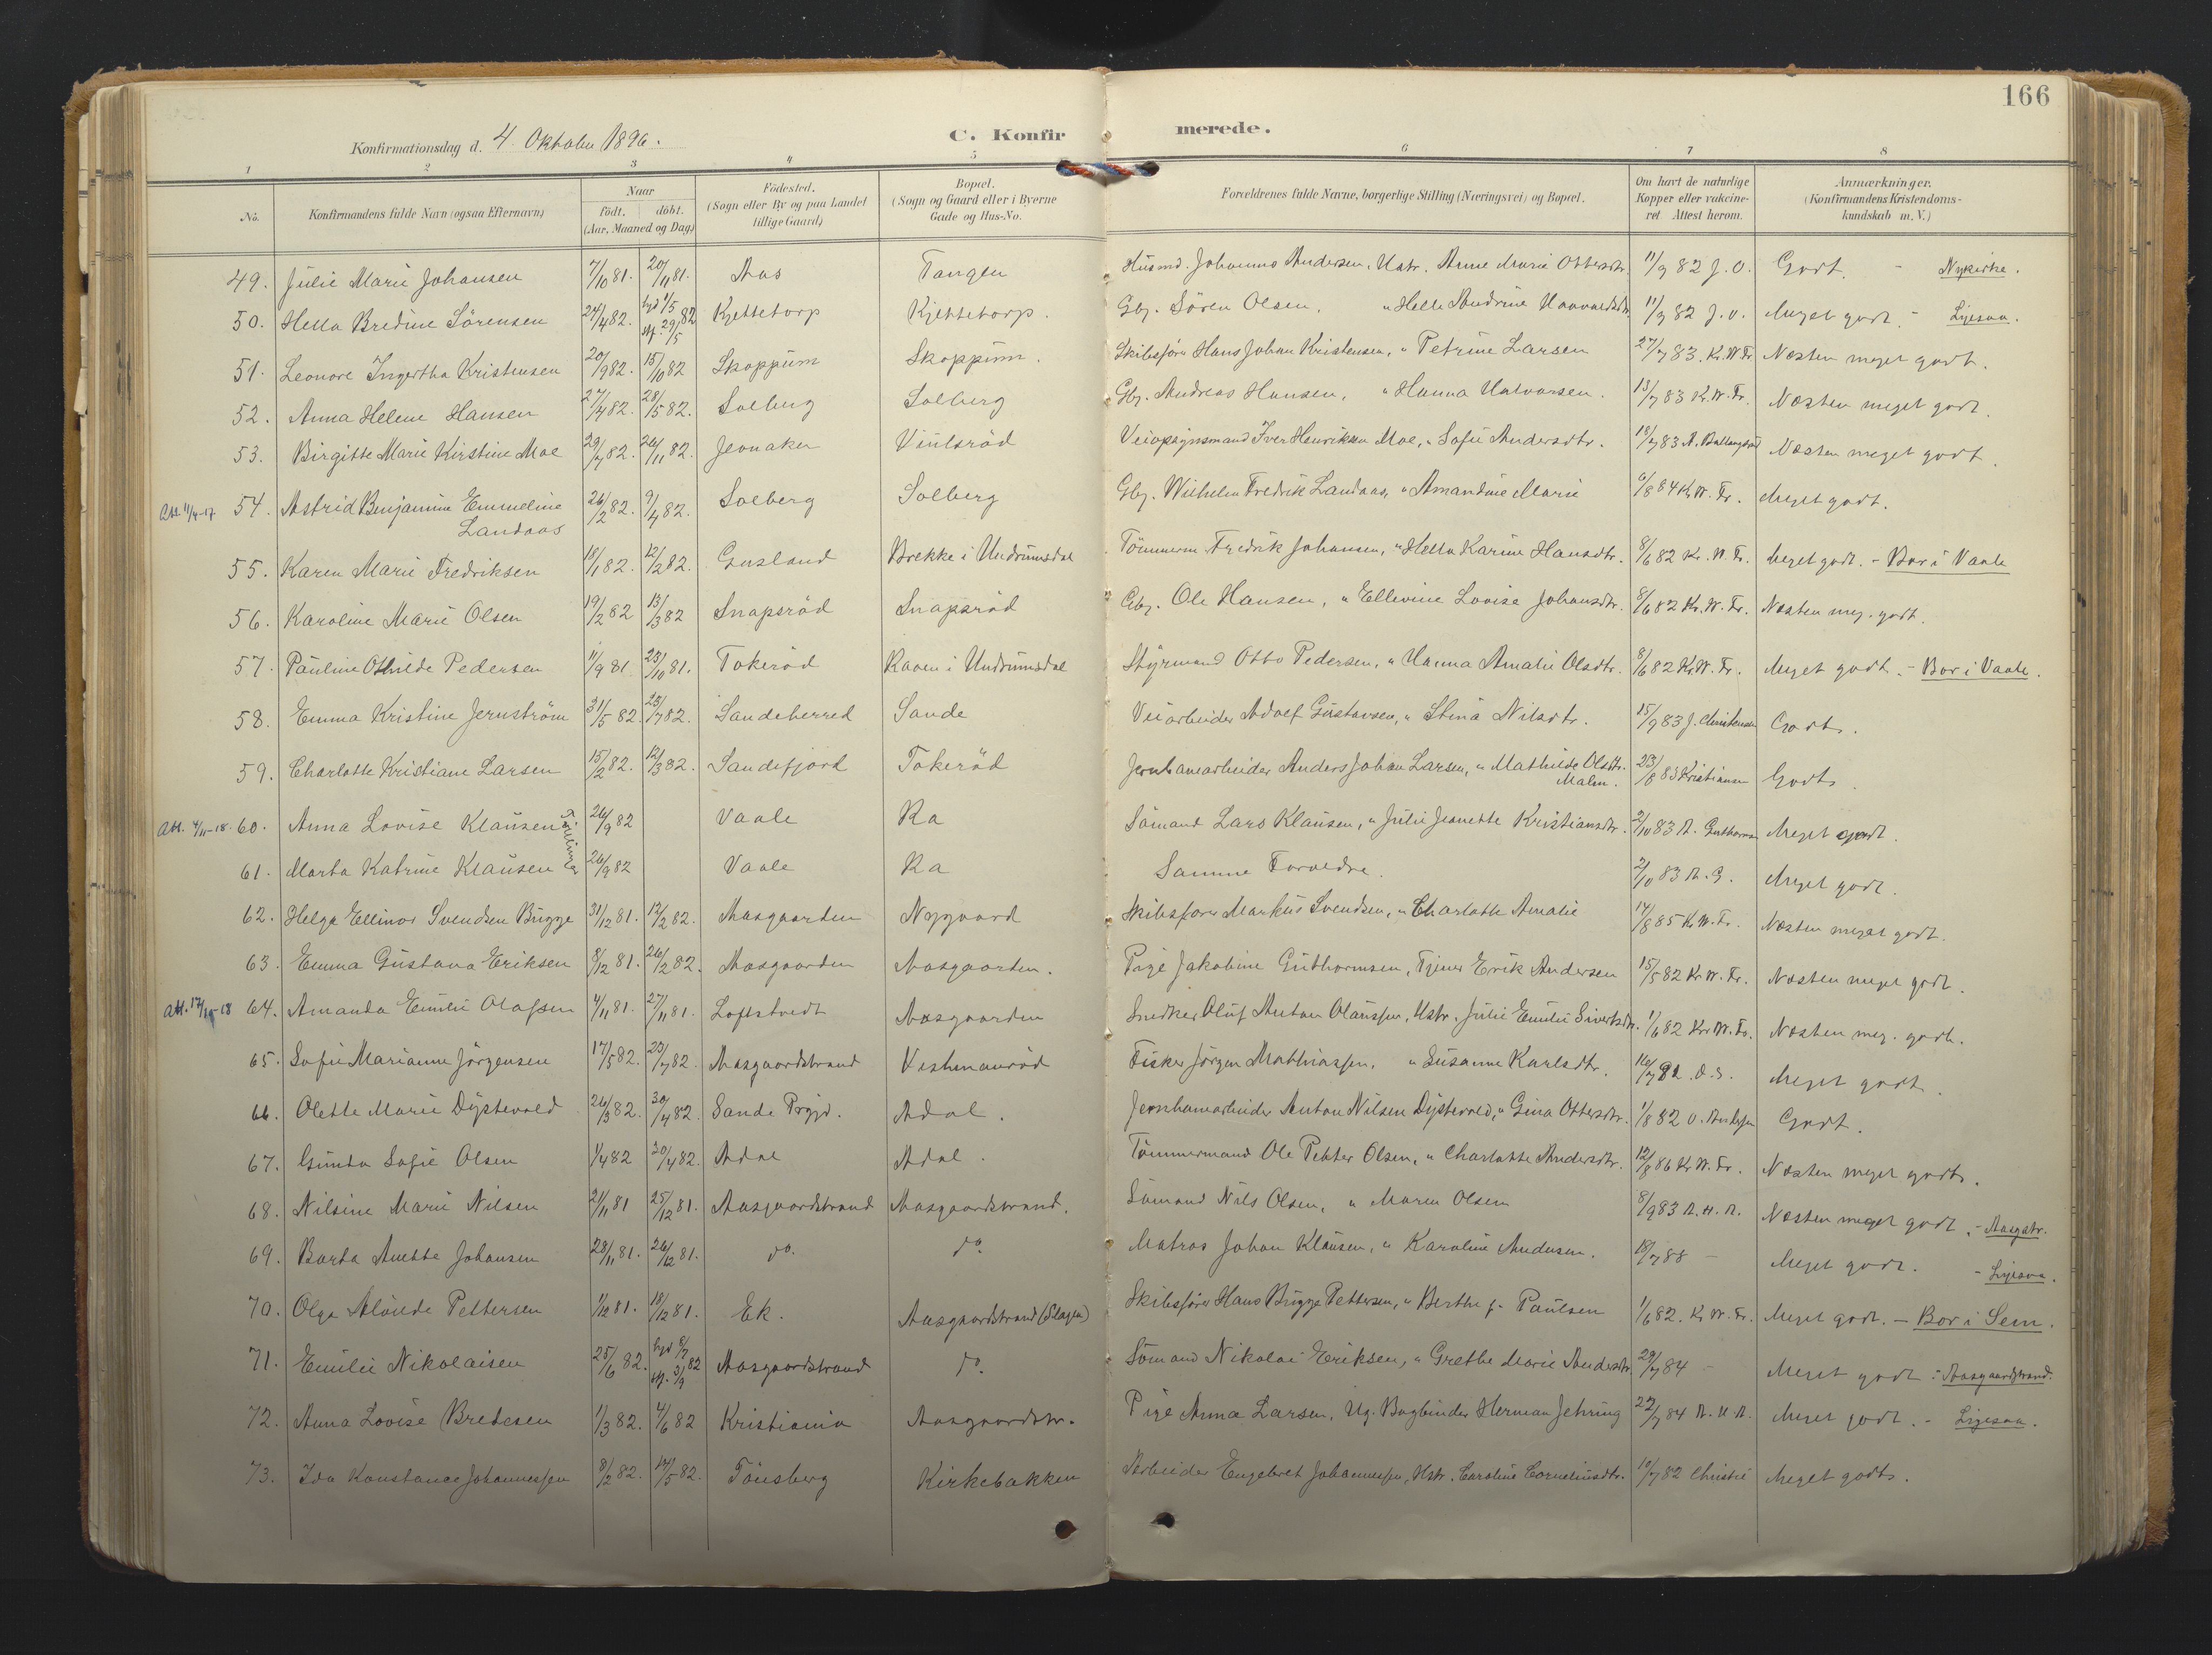 166
Konfirmationsdag d. 4. Oktober 1896.
C. Konfirmerede.
1 2 3 4 5 6 7 8
No. Konfirmandens fulde Navn (ogsaa Efternavn) Naar født. døbt. (Aar, Maaned og Dag) Fødested. (Sogn eller By og paa Landet tillige Gaard) Bopæl. (Sogn og Gaard eller i Byerne Gade og Hus-No. Forældrenes fulde Navne, borgerlige Stilling (Næringsvei) og Bopæl. Om havt de naturlige Kopper eller vaccineret Attest herom. Anmærkninger. (Konfirmandens Kristendomskundskab m. V.)
49. Julie Marie Johansen 7/10 81. 20/11 81. Aas Tangen Husmd. Johannes Andersen, Hstr. Anne Marie Ottersdtr. 11/9 82 J. O. Godt. - Nykirke.
50. Hella Bredine Sörensen 24/4 82. hjd 1/5 82 stf. 29/5 Kjettetorp Kjettetorp. Gbr. Sören Olsen, " Helle Andrine Haavaldsdtr. 11/9 82 J. O. Meget godt. - Ligesaa.
51. Leonore Ingertha Kristensen 20/9 82. 15/10 82 Skoppum Skoppum. Skibsförer Hans Johan Kristensen, " Petrine Larsen 27/7 83. Kr. W. Fr. Næsten meget godt.
52. Anna Helene Hansen 27/4 82. 28/5 82. Solberg Solberg Gbr. Andreas Hansen, " Hanna Halvorsen. 13/7 83 Kr. W. Fr. Næsten meget godt.
53. Birgitte Marie Kirstine Moe 29/7 82. 26/11 82. Jevnaker Viulsröd Veiopsynsmand Iver Henriksen Moe, " Sofie Andersdtr. 18/7 83 A. Ballangrud Næsten meget godt.
Att 11/4-17 54. Astrid Benjamine Emmeline Landaas 26/2 82. 9/4 82. Solberg Solberg Gbr. Wilhelm Fredrik Landaas, " Amandine Marie 6/8 84 Kr. W. Fr. Meget godt.
55. Karen Marie Fredriksen 18/1 82. 12/2 82. Gusland Brekke i Undrumsdal Tömmerm. Fredrik Johansen, " Hella Karine Hansdtr. 8/6 82 Kr. W. Fr. Meget godt. - Bor i Vaale
56. Karoline Marie Olsen 19/2 82 13/3 82 Snapsröd Snapsröd Gbr. Ole Hansen, " Ellevine Lovise Johansdtr. 8/6 82 Kr. W. Fr. Næsten meg. godt.
57. Pauline Othilde Pedersen 11/9 81 23/10 81. Tokeröd Raaen i Undrumsdal Styrmand Otto Pedersen, " Hanna Amalie Olsdtr. 8/6 82 Kr. W. Fr. Meget godt. - Bor i Vaale.
58. Emma Kristine Jernström 31/5 82. 23/7 82. Sandeherred Sande Veiarbeider Adolf Gustavsen, " Stina Nilsdtr. 15/9 83 J. Christensen Godt.
59. Charlotte Kristiane Larsen 15/2 82. 12/3 82. Sandefjord Tokeröd Jernbanearbeider Anders Johan Larsen, " Mathilde Olsdtr. Malm. 23/8 83 Kristiansen Godt.
Att. 4/11-18. 60. Anna Lovise Klausen Tvillinger 26/9 82 Vaale Ra Sömand Lars Klausen, " Julie Jeanette Kristiansdtr. 2/10 83 A. Guthormsen Meget godt.
61. Marta Katrine Klausen 26/9 82 Vaale Ra Samme Forældre. 2/10 83 A. G. Meget godt.
62. Helga Ellinor Svendsen Bugge 31/12 81. 12/2 82. Aasgaarden Nygaard Skibsförer Markus Svendsen, " Charlotte Amalie 14/8 85 Kr. W. Fr. Næsten meget godt.
63. Emma Gustava Eriksen 8/12 81. 26/2 82. Aasgaarden Aasgaarden. Pige Jakobine Guthormsen, Tjener Erik Andersen 15/5 82 Kr. W. Fr. Næsten meget godt.
Att. 17/10-18 64. Amanda Emilie Olafsen 4/11 81. 27/11 81. Loftstvedt Aasgaarden Snedker Oluf Anton Olaussen, Hstr. Julie Emilie Sivertsdtr. 1/6 82 Kr. W. Fr. Næsten meg. godt.
65. Sofie Marianne Jörgensen 17/5 82. 23/7 82. Aasgaardstrand Vestmanröd Fisker Jörgen Mathiassen, " Susanne Karlsdtr. 16/7 82. O. S. Meget godt.
66. Olette Marie Dystevold 26/3 82. 30/4 82. Sande Prgjd. Adal. Jernbanearbeider Anton Nilsen Dystevold, " Gina Ottersdtr. 1/8 82 O. Andersen Godt.
67. Gunda Sofie Olsen 1/4 82 30/4 82. Adal Adal. Tömmermand Ole Petter Olsen, " Charlotte Andersdtr. 12/8 86 Kr. W. Fr. Næsten meget godt.
68. Nilsine Marie Nilsen 21/11 81 25/12 81. Aasgaardstrand Aasgaardstrand. Sömand Nils Olsen, " Maren Olsen 8/9 83 A. H. A. Næsten meget godt. - Aasgstr.
69. Barta Anette Johansen 28/11 81. 26/12 81. do. do. Matros Johan Klausen, " Karoline Andersen. 18/7 88 - Meget godt. - Ligesaa.
70. Olga Alvilde Pettersen 1/12 81. 18/12 81. Ek. Aasgaardstrand (Slagen) Skibsförer Hans Bugge Pettersen, " Berthe f. Paulsen 1/6 82. Kr. W. Fr. Meget godt. - Bor i Sem.
71. Emilie Nikolaisen 25/6 82. hjd 8/7 82 stf. 3/9 Aasgaardstrand do. Sömand Nikolai Eriksen, " Grethe Marie Andersdtr. 29/7 84 - Meget godt - Aasgaardstrand.
72. Anna Lovise Bredesen 1/3 82. 4/6 82 Kristiania Aasgaardstr. Pige Anna Larsen, Ug. Bogbinder Herman Jehring 22/7 84 A. H. A. Meget godt. - Ligesaa.
73. Ida Konstance Johannessen 8/2 82. 14/5 82. Tönsberg Kirkebakken Arbeider Engebret Johannessen, Hstr. Caroline Corneliusdtr. 10/7 82 Christie Meget godt.